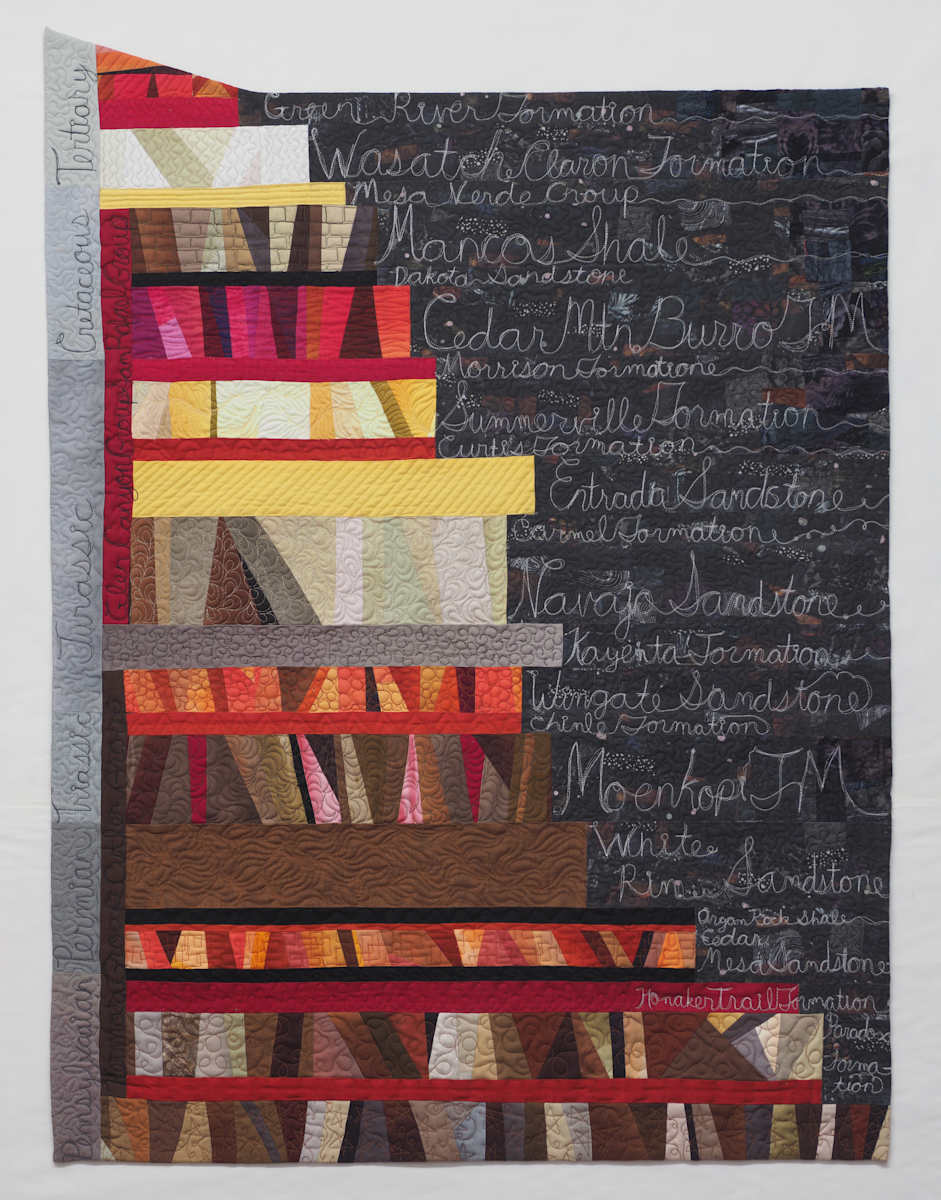 Tertiary
Cretaceous
Jurassic
Triassic
Permian
Glen Canyon Group
Green River Formation
Wasatch Claron Formation
Mesa Verde Group
Mancos Shale
Dakota Sandstone
Cedar Mtn, Burro FM
Morrison Formation
Summerville Formation
Curtis Formation
Entrada Sandstone
Carmel Formation
Navajo Sandstone
Kayenta Formation
Wingate Sandstone
Chinle Formation
Moenkopi FM
White
Rim Sandstone
Organ Rock Shale
Cedar
Mesa Sandstone
Honaker Trail Formation
Paradox
Forma-
tion